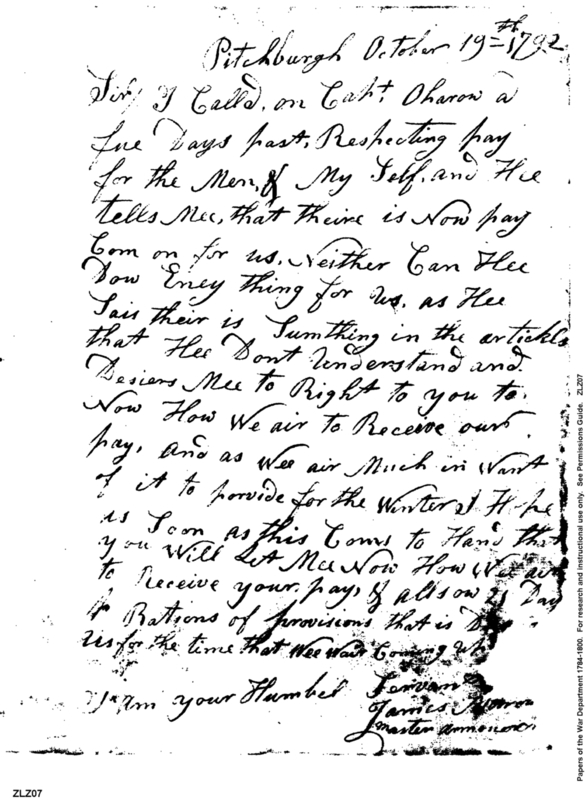 Pitchburgh October 19th 1792
Sir/ I Calld, on Capt. Oharow a
fue Days past, Respecting pay
for the Men, & My Self, and Hee
tells Mee, that theire is Now pay
Com on for us, Neither Can Hee
Dow Eney thing for us, as Hee
Sais their is Sumthing in the artickls
that Hee Dont Understand and
Desiers Mee to Right to you to
Now How We air to Receive our
pay, and as Wee air Much in Want
of it to porvide for the Winter I Hope
as Soon as this Coms to Hand that
you Will Let Mee Now How We air
to Receive your pay, & allsow Day
Rations of provisions that is
us for the time that Wee Wair Coming
I am your Humbel Servant
James
Master armourer
Papers of the War Department 1784-1800. For research and instructional use only. See Permissions Guide. ZLZ07
ZLZ07